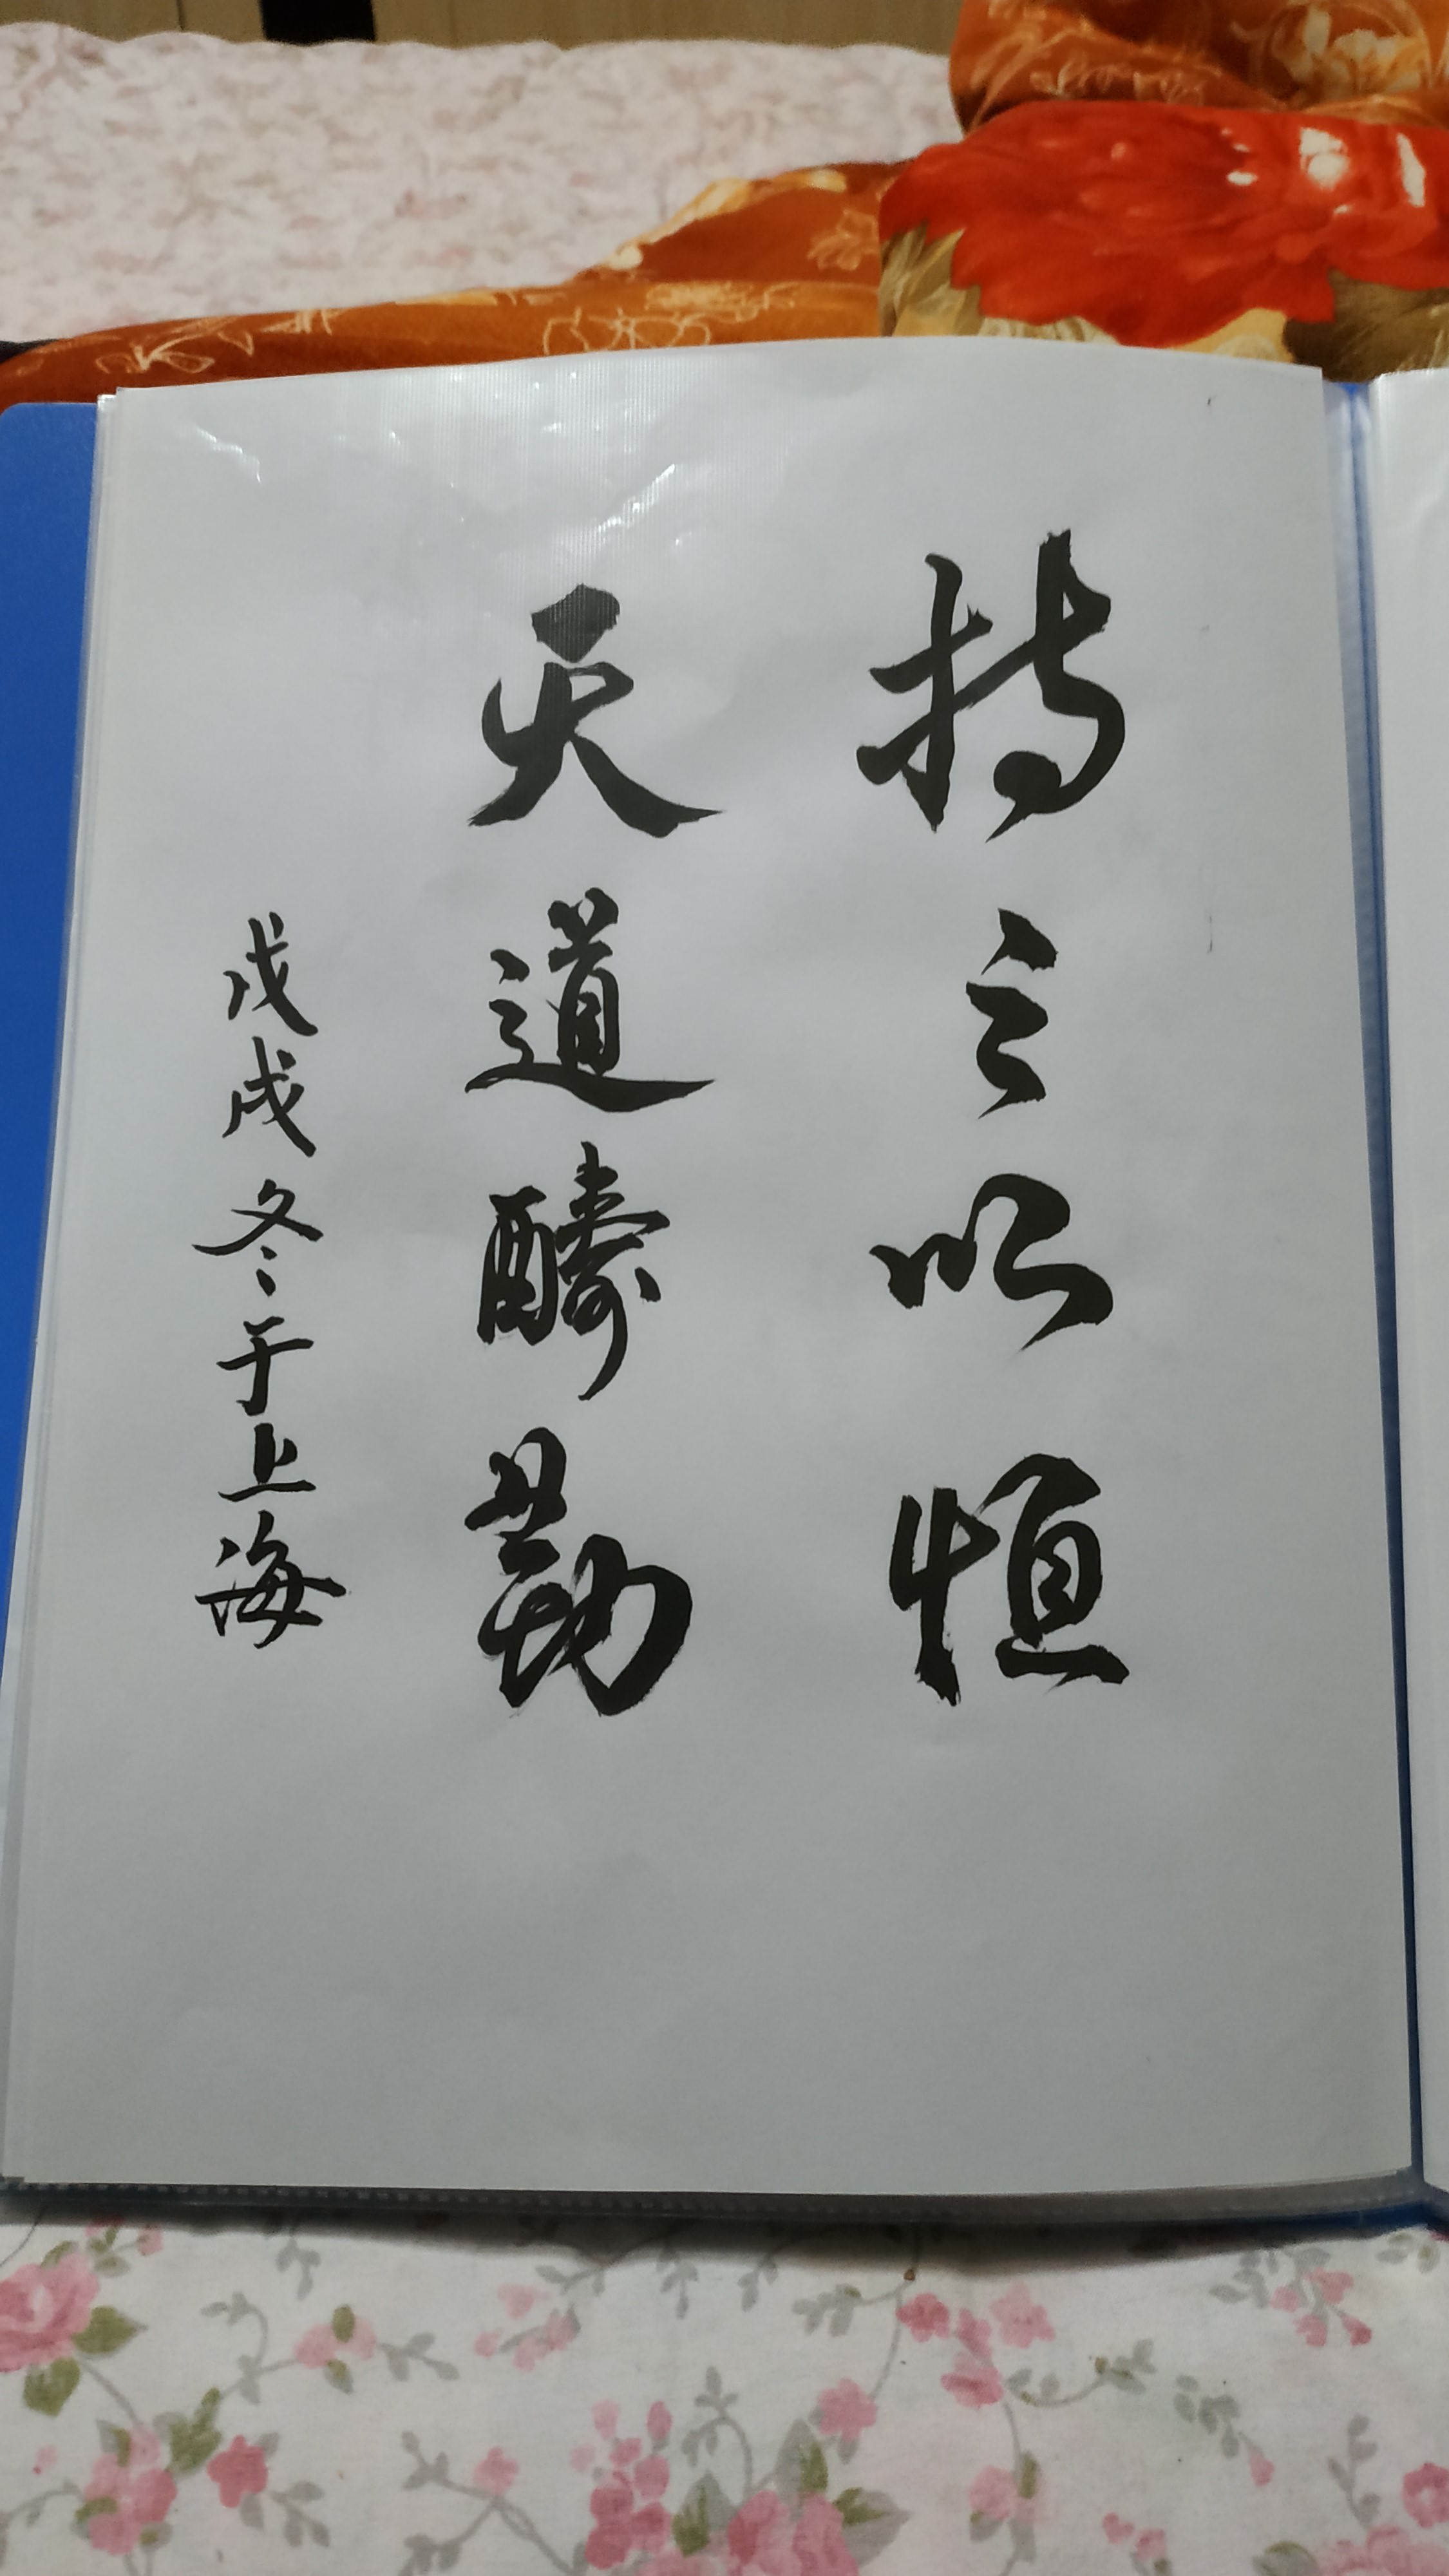 持之以恒
天道酬勤
戊戌冬于上海